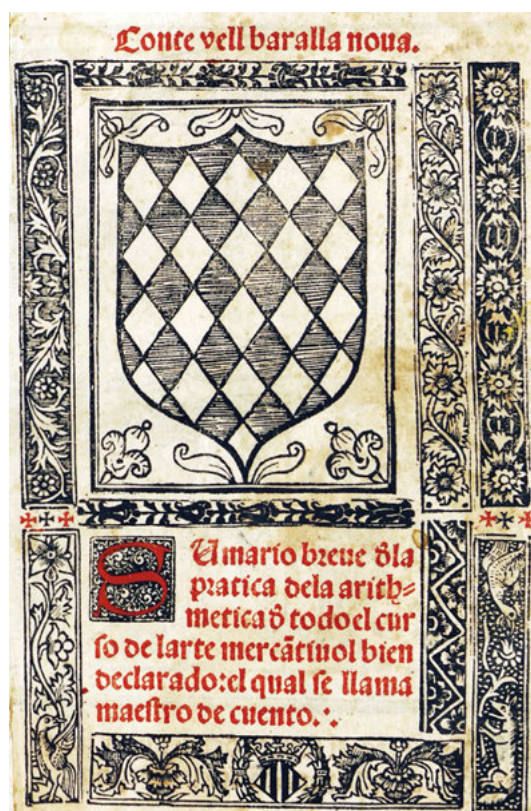 Conte vell baralla noua.
SUmario breue dla
pratica dela arith=
metica d todo el cur
so de larte mercãtiuol bien
declarado: el qual se llama
maestro de cuento.